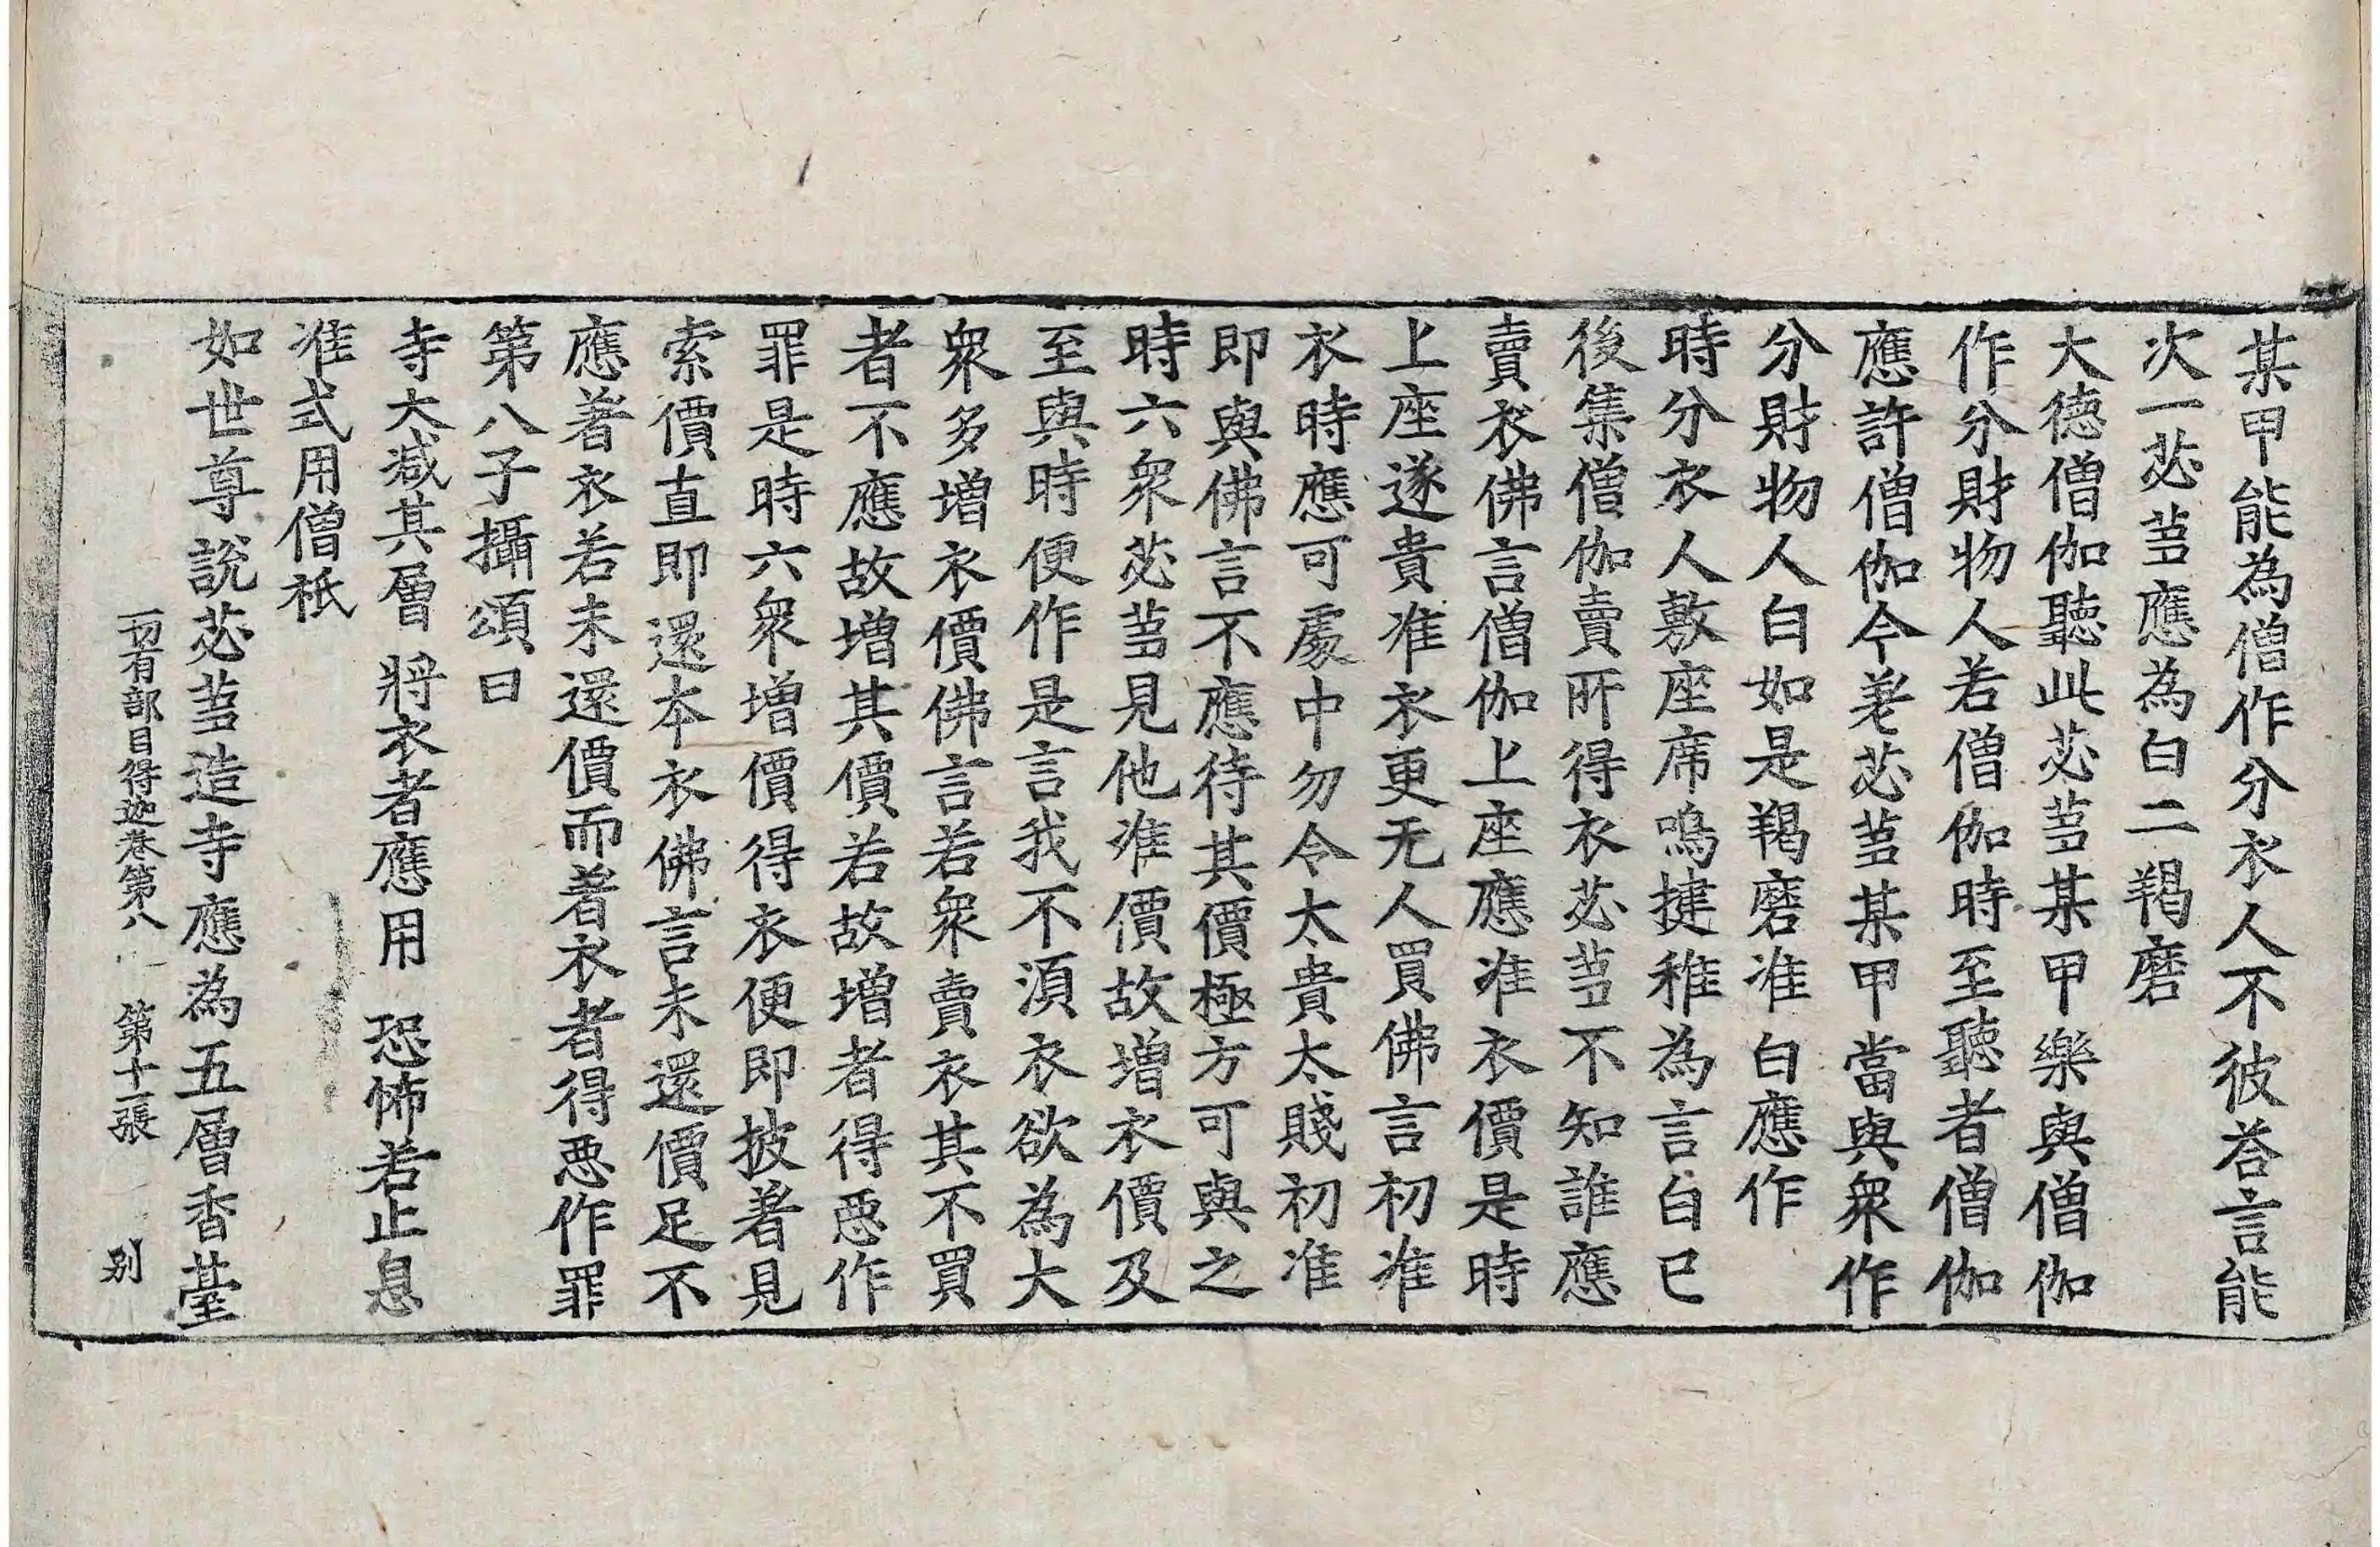 某甲能為僧作分衣人不彼荅言能
次一苾蒭應為白二羯磨
大徳僧伽聽此苾蒭某甲樂與僧伽
作分財物人若僧伽時至聽者僧伽
應許僧伽今差苾蒭某甲當與衆作
分財物人白如是羯磨准白應作
時分衣人敷座席鳴揵稚為言白已
後集僧伽賣所得衣苾蒭不知誰應
賣衣佛言僧伽上座應准衣價是時
上座遂貴准衣更无人買佛言初准
衣時應可處中勿令太貴太賤初准
即與佛言不應待其價極方可與之
時六衆苾蒭見他准價故增衣價及
至與時便作是言我不湏衣欲為大
衆多增衣價佛言若衆賣衣其不買
者不應故增其價若故增者得惡作
罪是時六衆增價得衣便即披著見
索價直即還本衣佛言未還價足不
應著衣若未還價而著衣者得惡作罪
第八子攝頌曰
寺大減其層 將衣者應用 恐怖若止息
准式用僧祇
一切有部目得迦卷第八 第十一張 别
如世尊說苾蒭造寺應為五層香臺